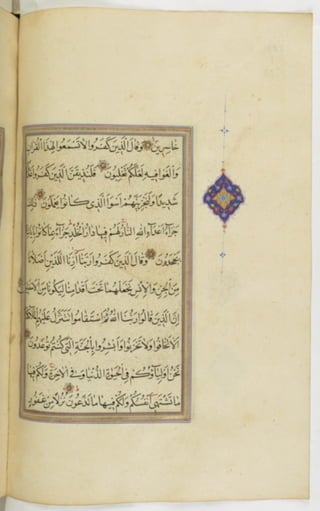 خَاسِرِينَ وَقَالَ الَّذِينَ كَفَرُوا لَا تَسْمَعُوا لِهَذَا الْقُرْآنِ
وَالْغَوْا فِيهِ لَعَلَّكُمْ تَغْلِبُونَ فَلَنُذِيقَنَّ الَّذِينَ كَفَرُوا عَذَابًا
شَدِيدًا وَلَنَجْزِيَنَّهُمْ أَسْوَأَ الَّذِي كَانُوا يَعْمَلُونَ ذَلِكَ
جَزَاءُ أَعْدَاءِ اللَّهِ النَّارُ لَهُمْ فِيهَا دَارُ الْخُلْدِ جَزَاءً بِمَا كَانُوا بِآيَاتِنَا
يَجْحَدُونَ وَقَالَ الَّذِينَ كَفَرُوا رَبَّنَا أَرِنَا اللَّذَيْنِ أَضَلَّانَا
مِنَ الْجِنِّ وَالْإِنْسِ نَجْعَلْهُمَا تَحْتَ أَقْدَامِنَا لِيَكُونَا مِنَ الْأَسْفَلِينَ
إِنَّ الَّذِينَ قَالُوا رَبُّنَا اللَّهُ ثُمَّ اسْتَقَامُوا تَتَنَزَّلُ عَلَيْهِمُ الْمَلَائِكَةُ
أَلَّا تَخَافُوا وَلَا تَحْزَنُوا وَأَبْشِرُوا بِالْجَنَّةِ الَّتِي كُنْتُمْ تُوعَدُونَ
نَحْنُ أَوْلِيَاؤُكُمْ فِي الْحَيَاةِ الدُّنْيَا وَفِي الْآخِرَةِ وَلَكُمْ فِيهَا
مَا تَشْتَهِي أَنْفُسُكُمْ وَلَكُمْ فِيهَا مَا تَدَّعُونَ نُزُلًا مِنْ غَفُورٍ